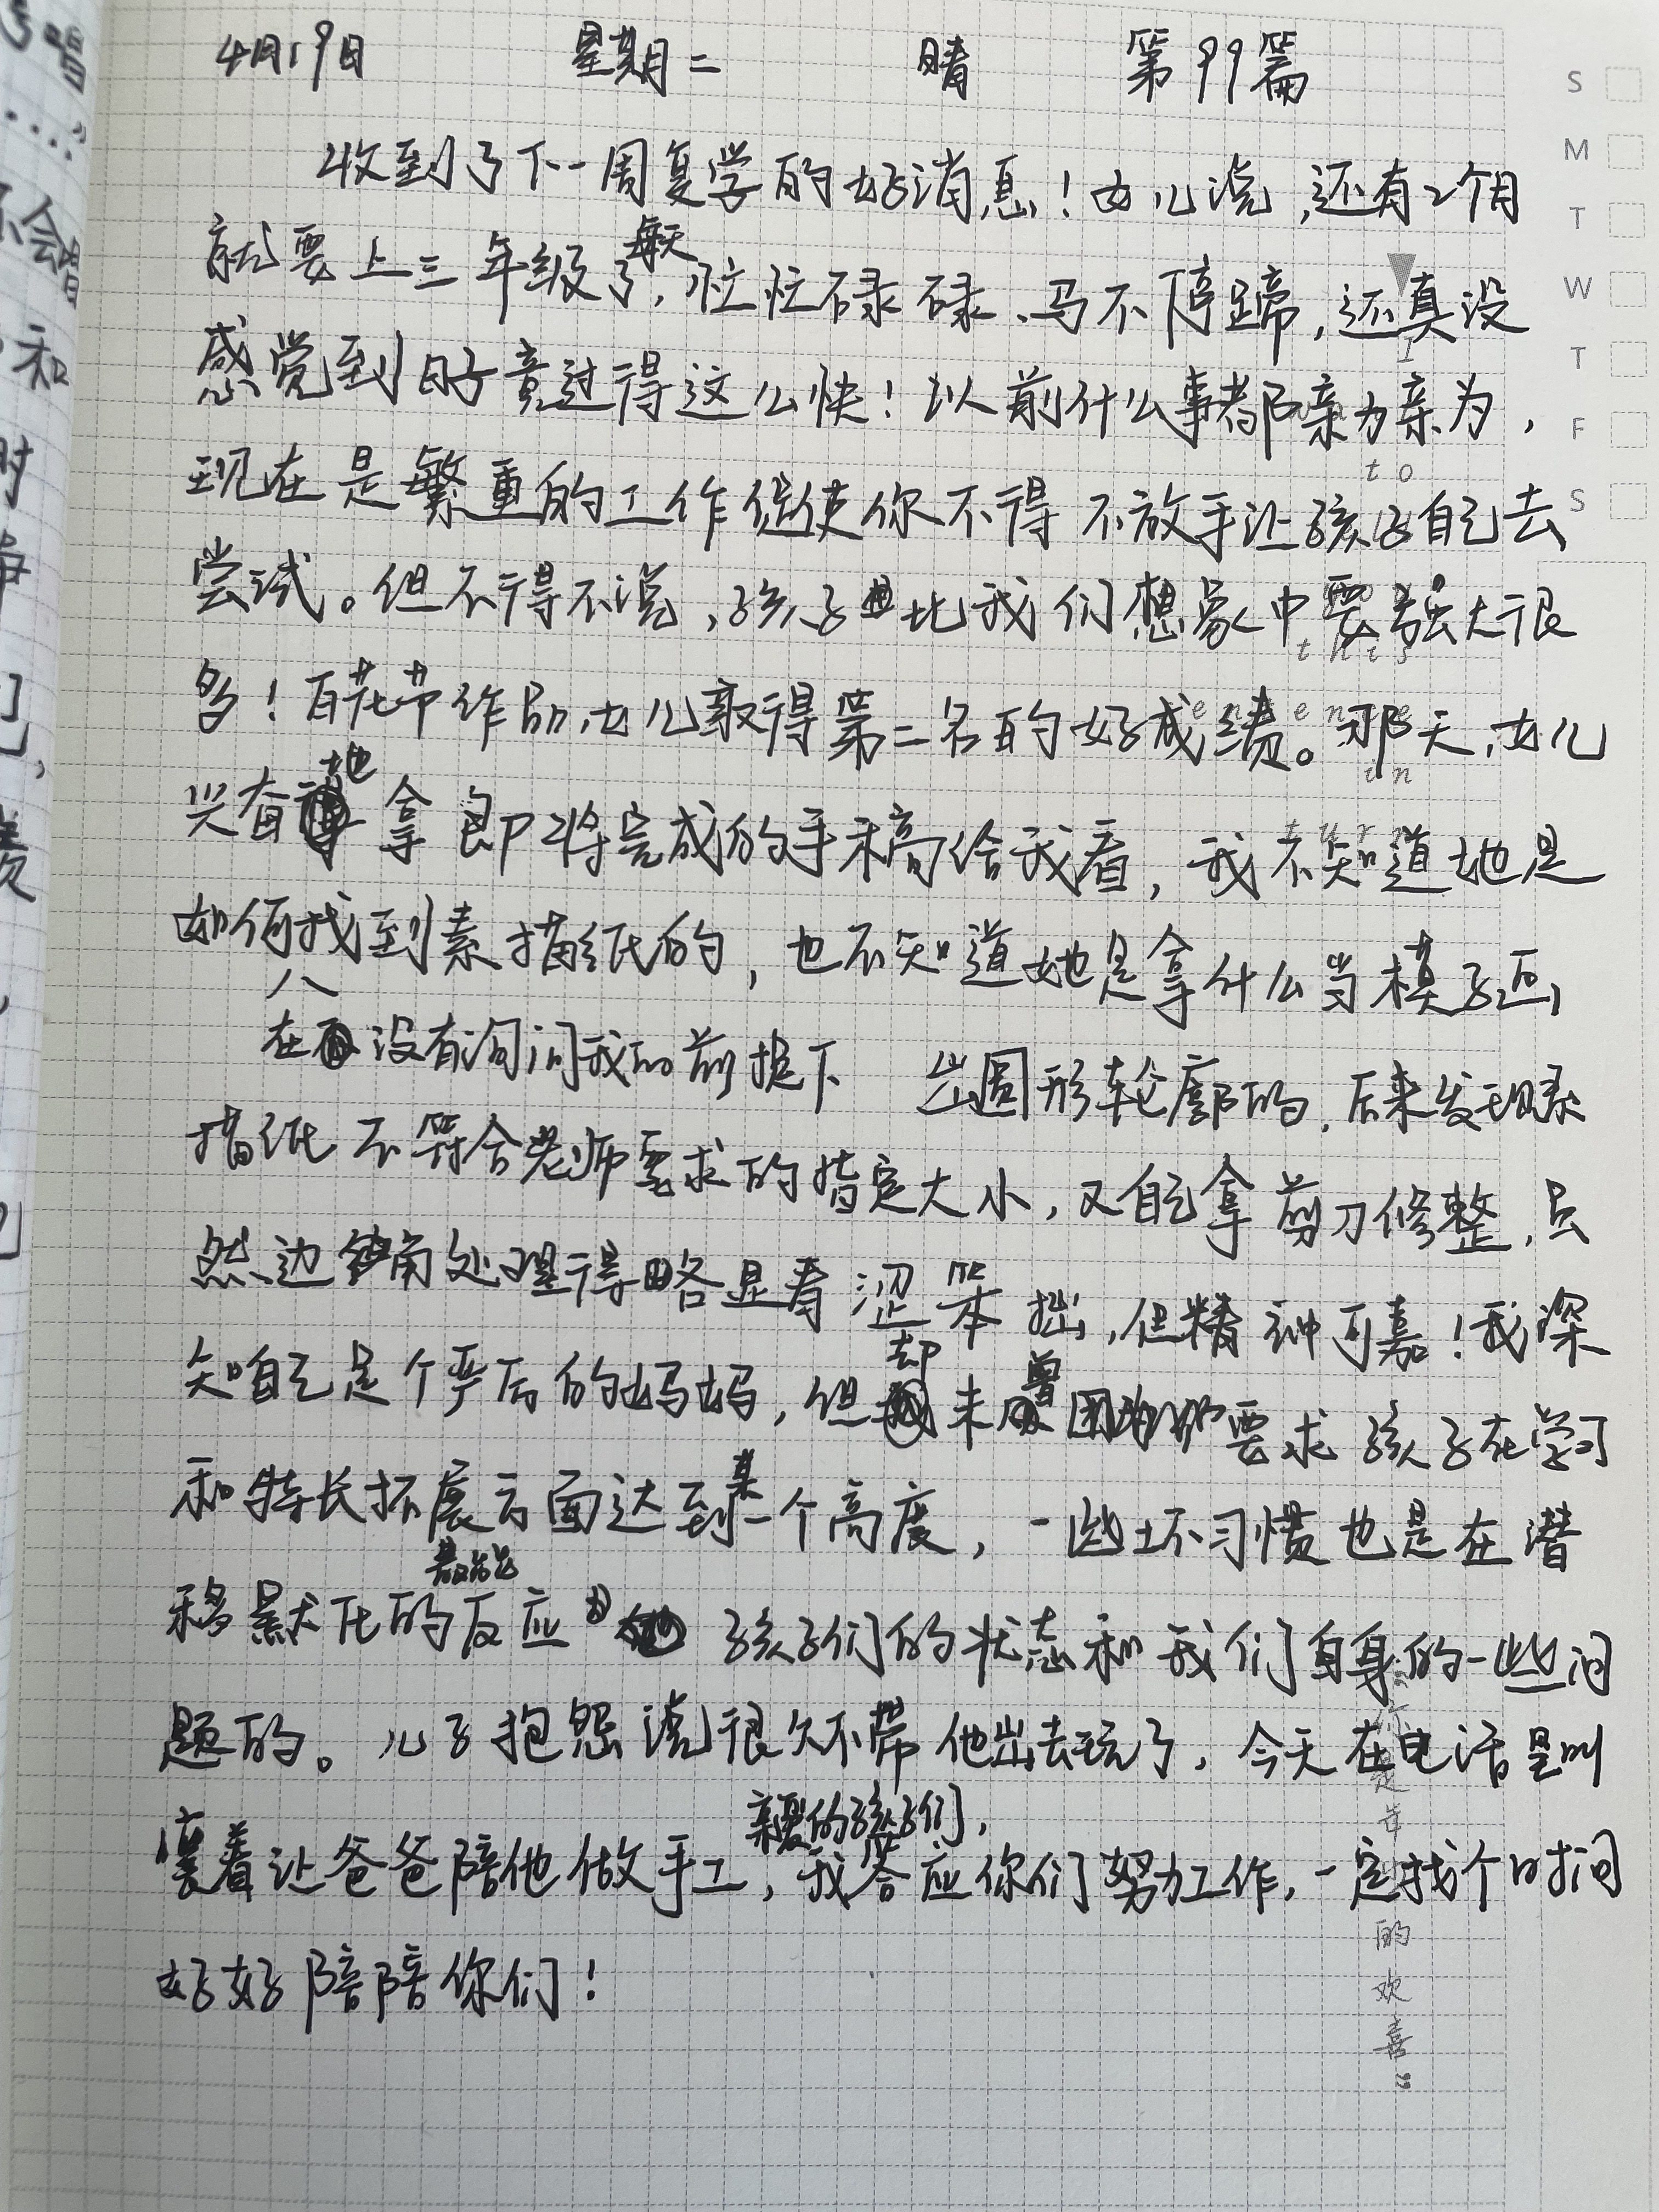 4月19日 星期二 晴 第99篇
收到了下一周复学的好消息！女儿说，还有2个月
就要上三年级了，每天忙忙碌碌、马不停蹄，还真没
感觉到日子竟过得这么快！以前什么事都亲力亲为，
现在是繁重的工作促使你不得不放手让孩子自己去
尝试。但不得不说，孩子比我们想象中要强大很
多！百花节作品，女儿获得第二名的好成绩。那天，女儿
兴奋地拿即将完成的手稿给我看，我不知道她是
如何找到素描纸的，也不知道她是拿什么当模子画
在没有询问我的前提下
出圆形轮廓的，后来发现素
描纸不符合老师要求的指定大小，又自己拿剪刀修整，虽
然边角处理得略显青涩笨拙，但精神可嘉！我深
知自己是个严厉的妈妈，但却未曾要求孩子在学习
和特长拓展方面达到某一个高度，一些坏习惯也是在潜
移默化的反应孩子们的状态和我们自身的一些问
题的。儿子抱怨说很久不带他出去玩了，今天在电话里叫
嚷着让爸爸陪他做手工，亲爱的孩子们，我答应你们努力工作，一定找个时间
好好陪陪你们！
S
M
T
W
T
F
S
I
to
this
sentence
in
turn
的欢喜”